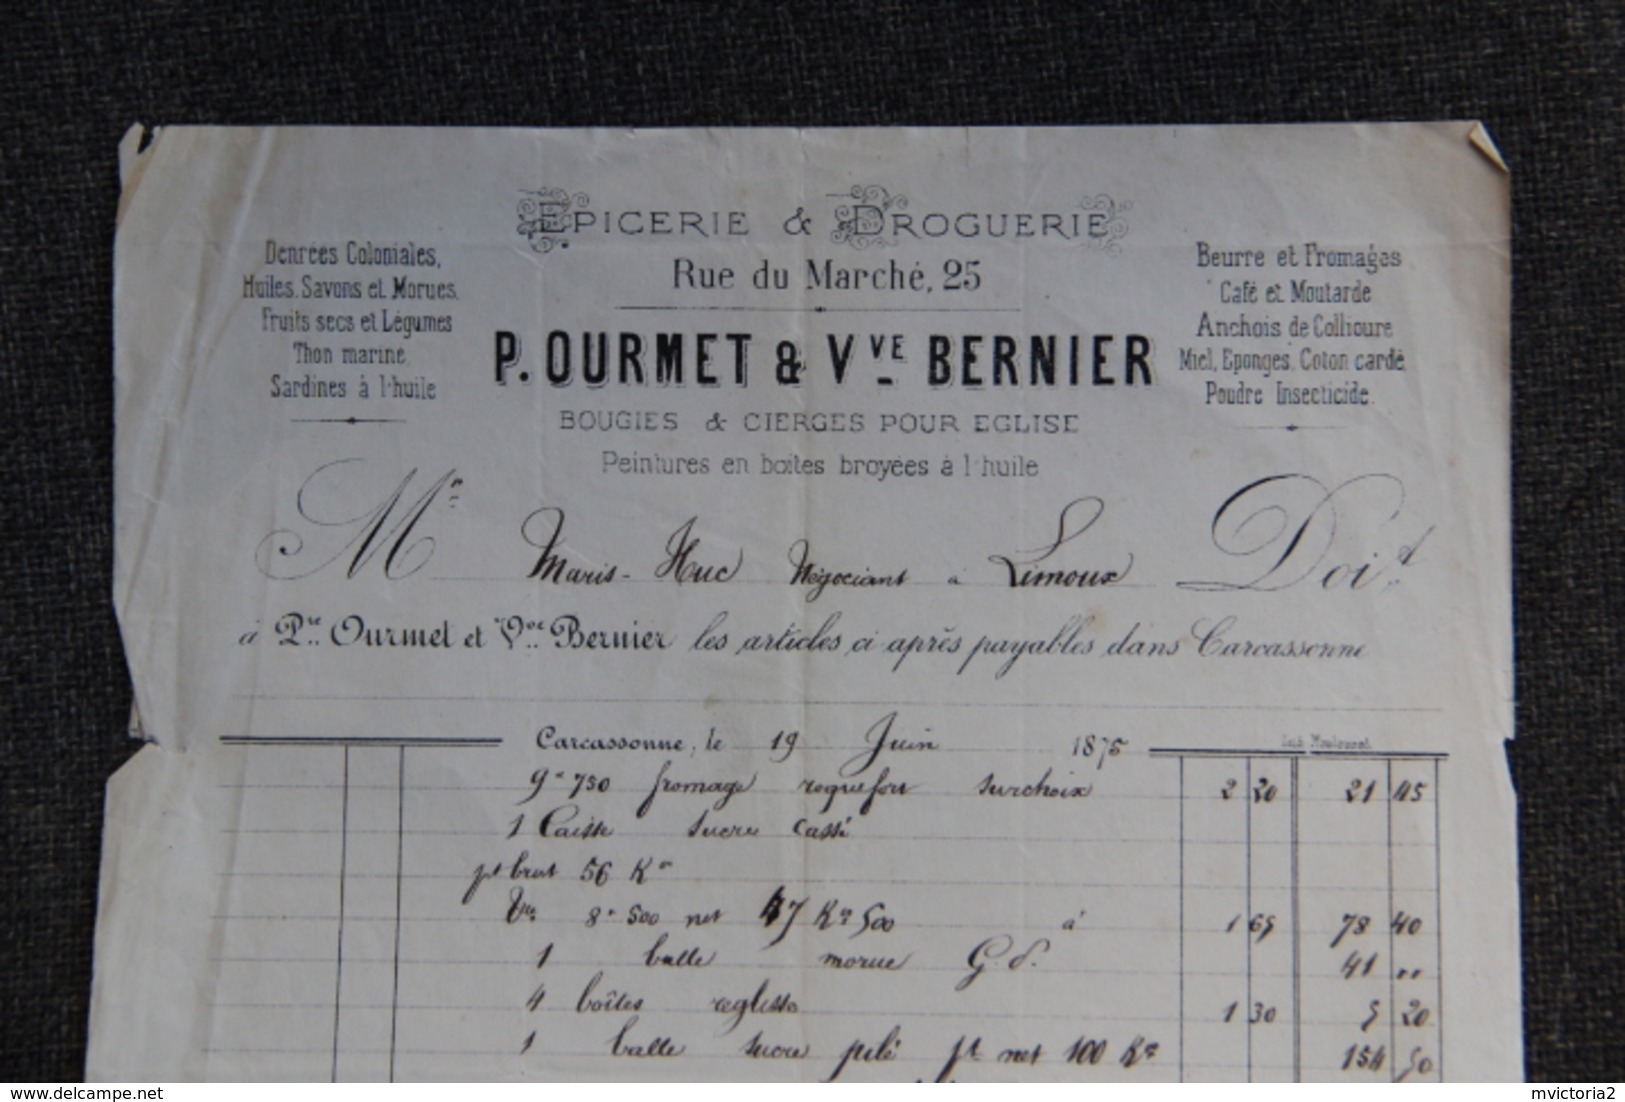 EPICERIE & DROGUERIE
Rue du Marché, 25
Denrées Coloniales,
Huiles, Savons et Morues,
Fruits secs et Légumes
Thon mariné,
Sardines à l'huile
Beurre et Fromages
Café et Moutarde
Anchois de Collioure
Miel, Eponges, Coton cardé
Poudre Insecticide.
P. OURMET & VVE BERNIER
BOUGIES & CIERGES POUR EGLISE
Peintures en boîtes broyées à l'huile
Mr Maris-Huc Négociant à Limoux Doit
à Pre Ourmet et Vve Bernier les articles ci après payables dans Carcassonne
Carcassonne, le 19 Juin 1875
9k 750 fromage roquefort surchoix 2 20 21 45
1 Caisse sucre cassé
pt brut 56 Kos
Tre 8k 500 net 47 Kos 500 à 1 65 78 40
1 balle morue G. d. 41 ..
4 boîtes réglisse 1 30 5 20
1 balle sucre pilé pt net 100 Kos 154 50
delcampe.net
mvictoria2